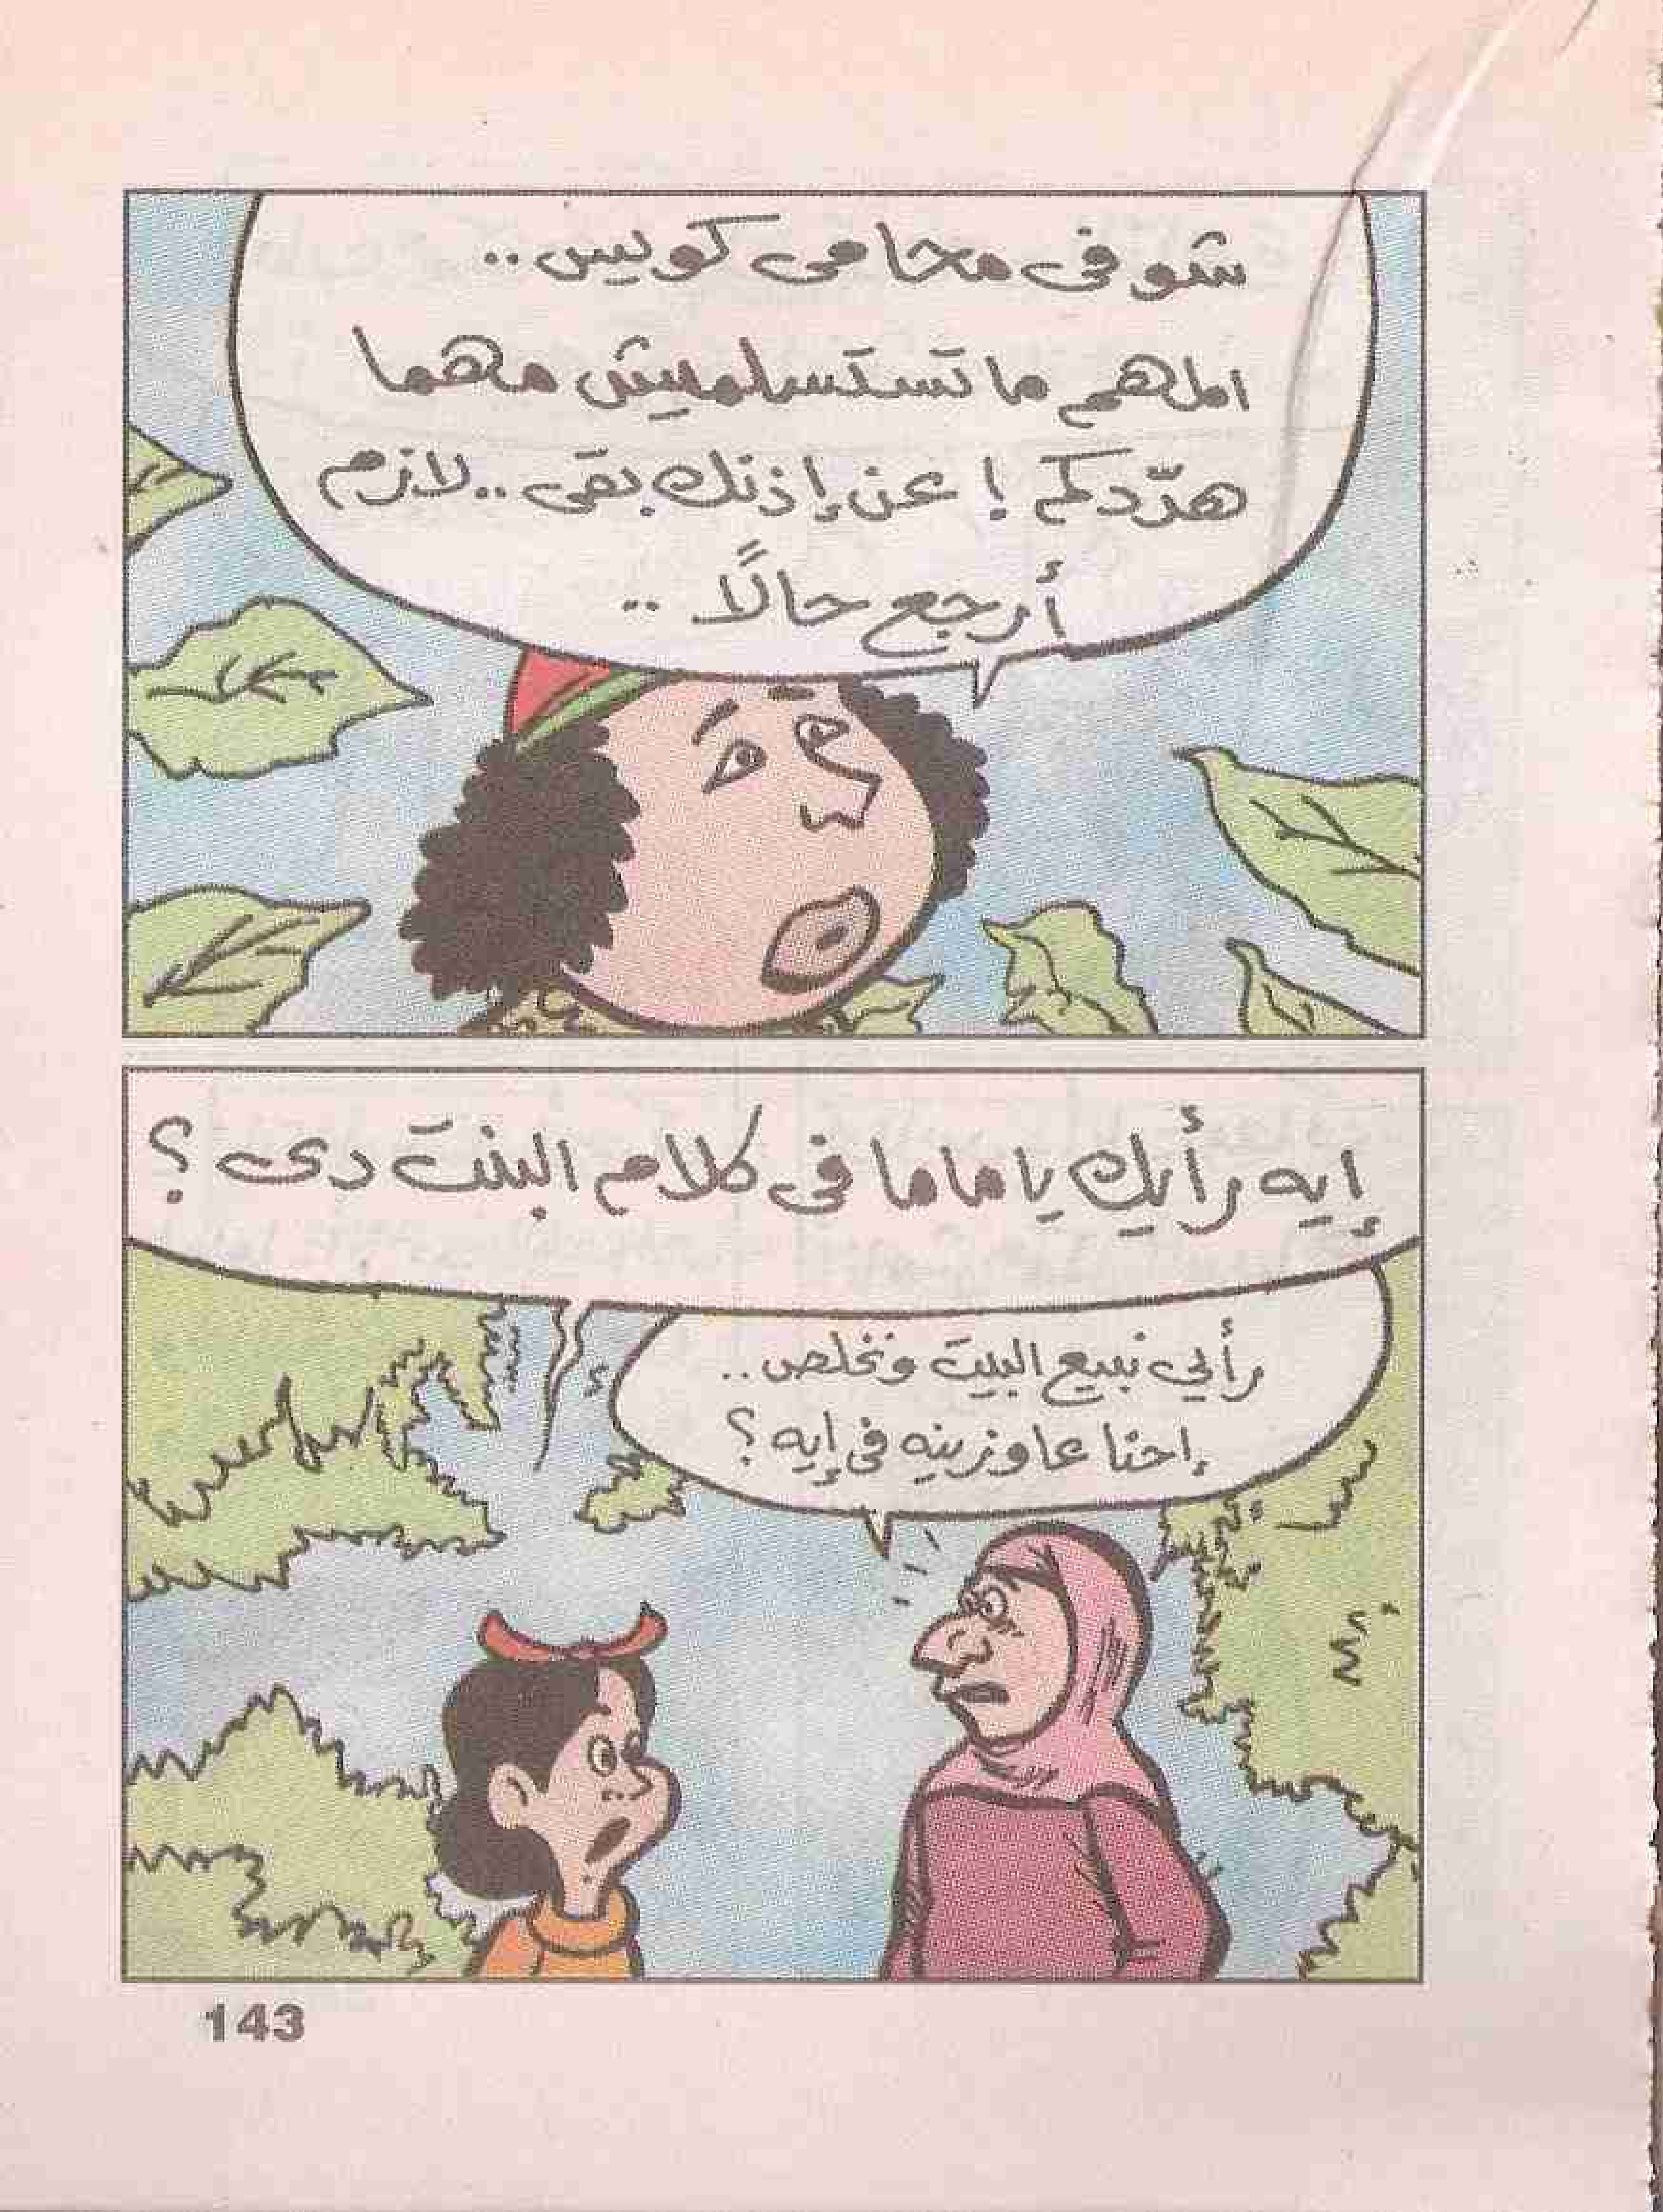 شوفى محامى كويس..
المهم ماتستسلميش مهما
هدّدكم! عن إذنك بقى.. لازم
أرجع حالًا..
إيه رأيك ياماما فى كلام البنت دى؟
رأيي نبيع البيت ونخلص..
إحنا عاوزينه فى إيه؟
143